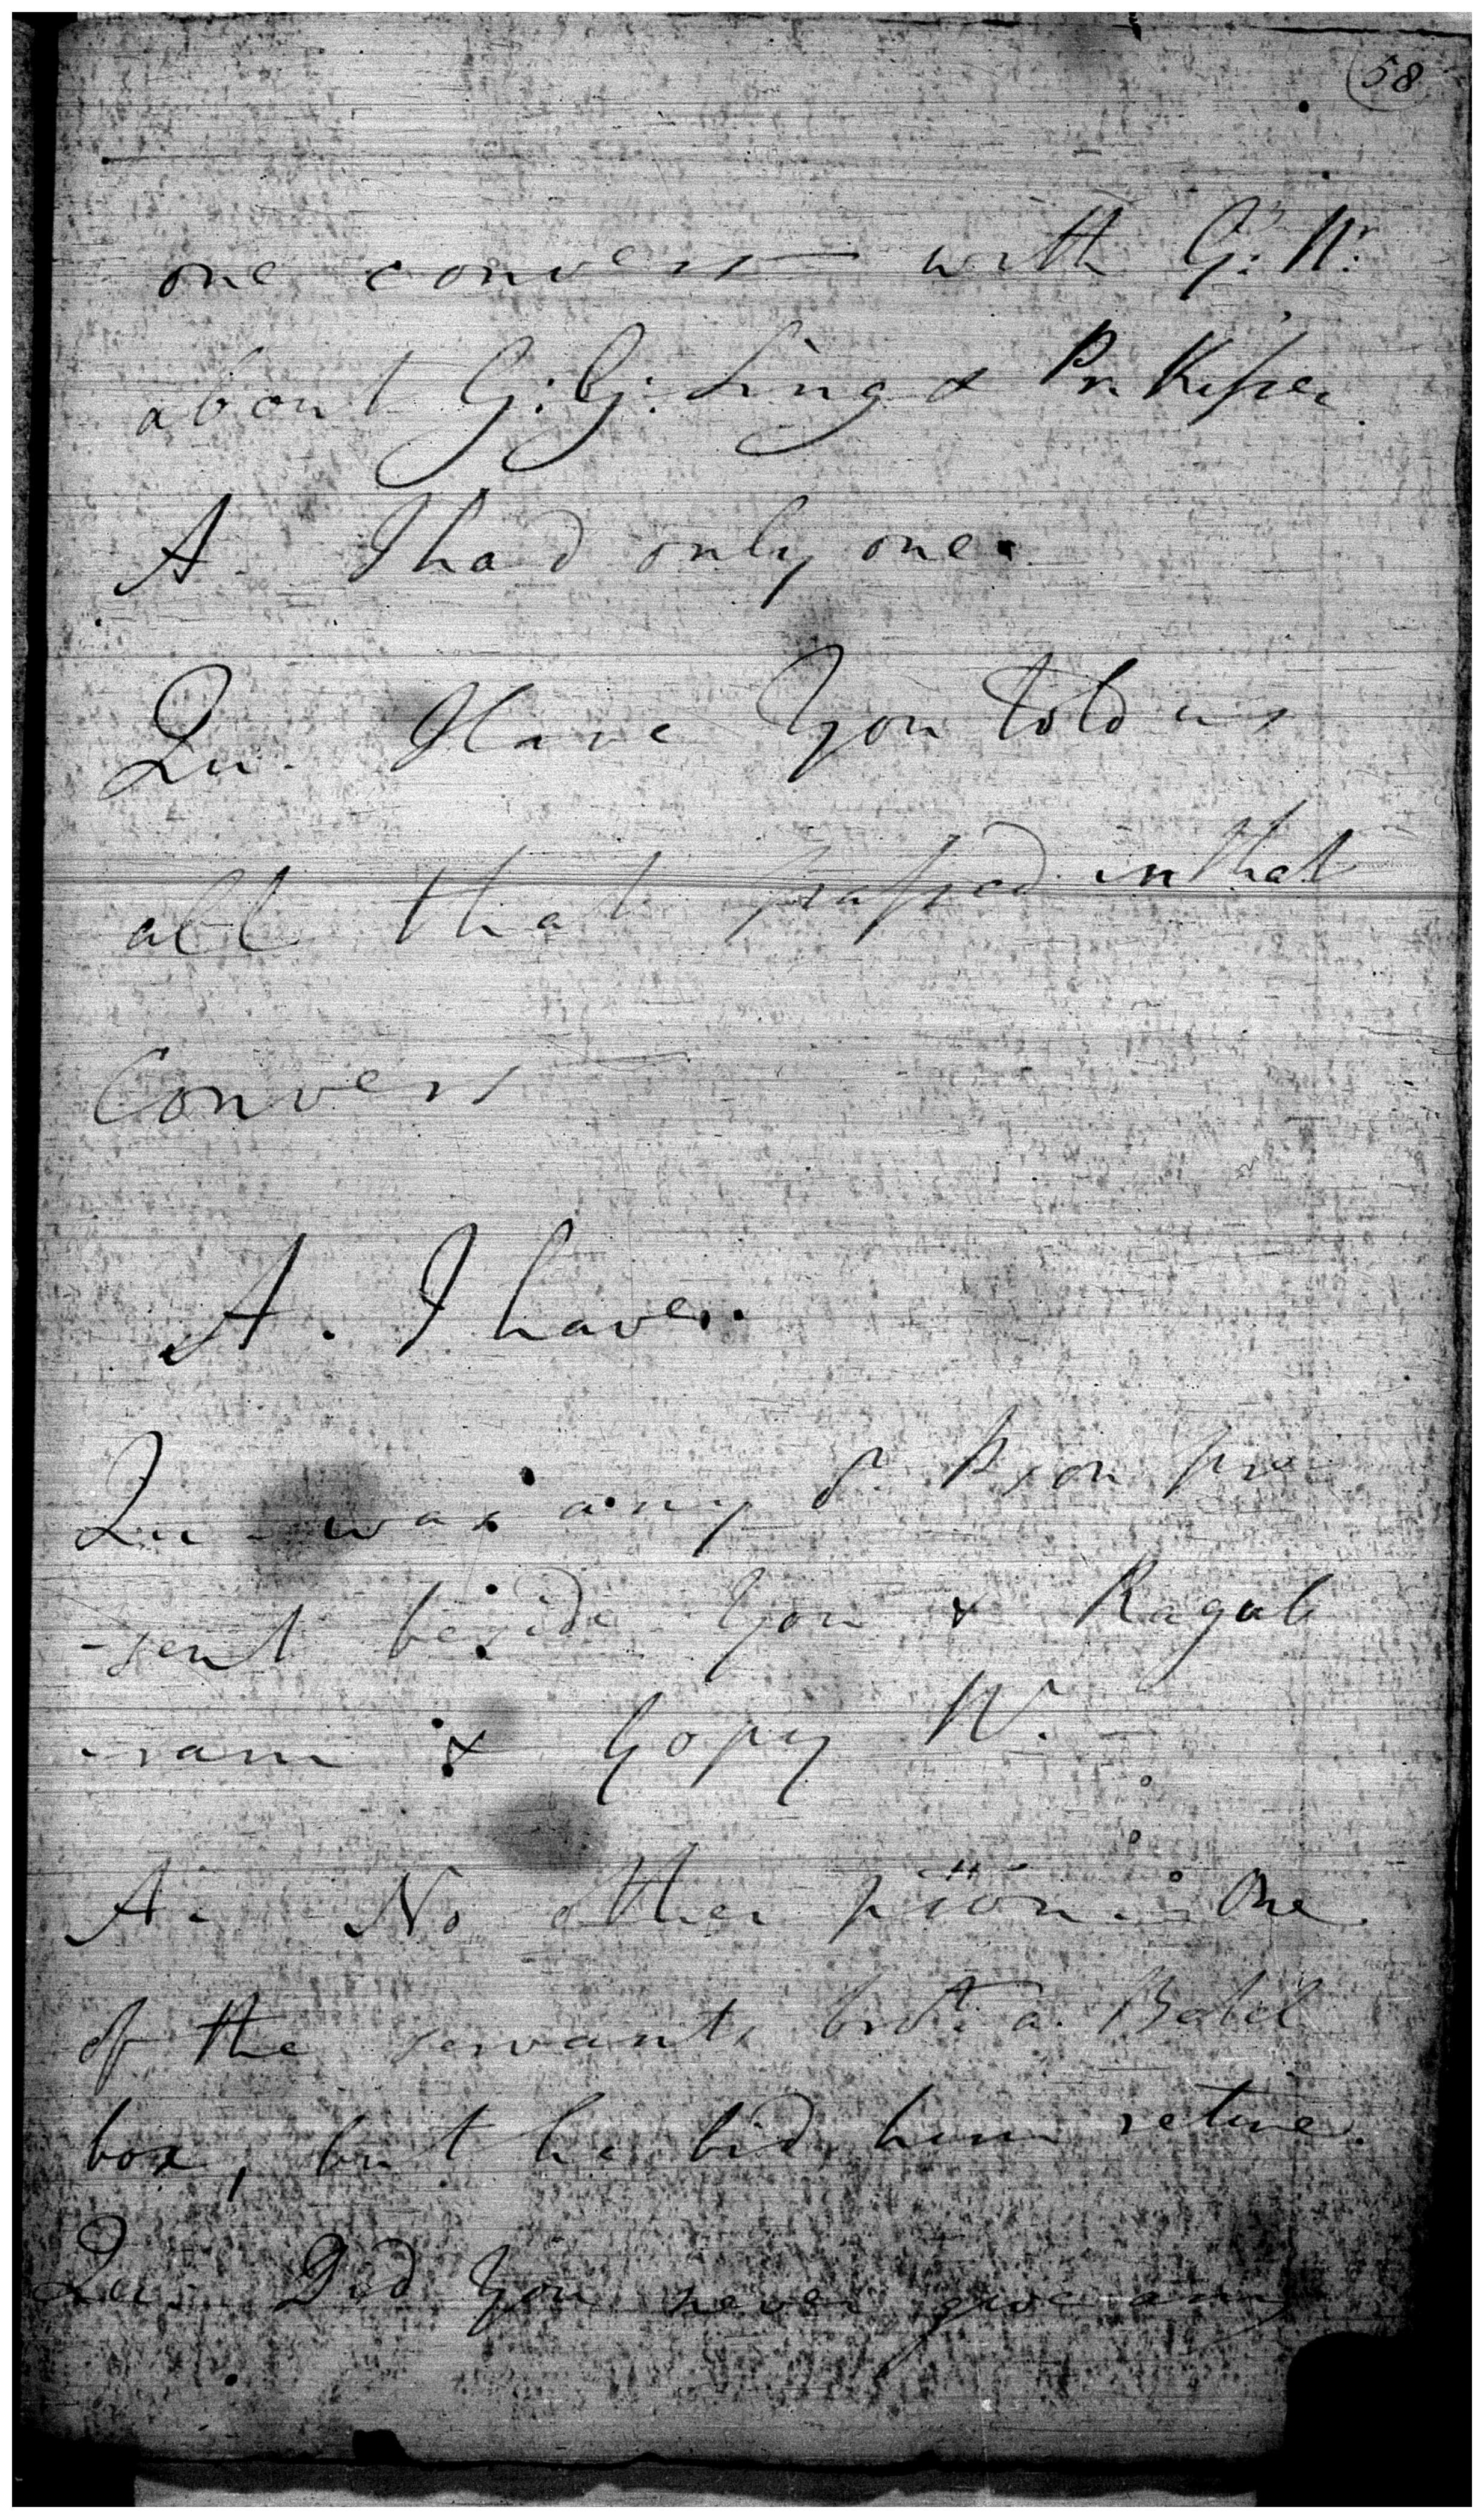 58
one convers with G: N:
about G: G: Sing & Pr. Kissen
A. I had only one.
Qu. Have You told us
all that passed in that
Convers
A. I have.
Qu - was any o. P.son pre
-sent beside You & Ragub
-ram & Gopy N.
A. No other p.son. One
of the servants brot. a Betel
box, but he bid him retire.
Qu. Did You never give any